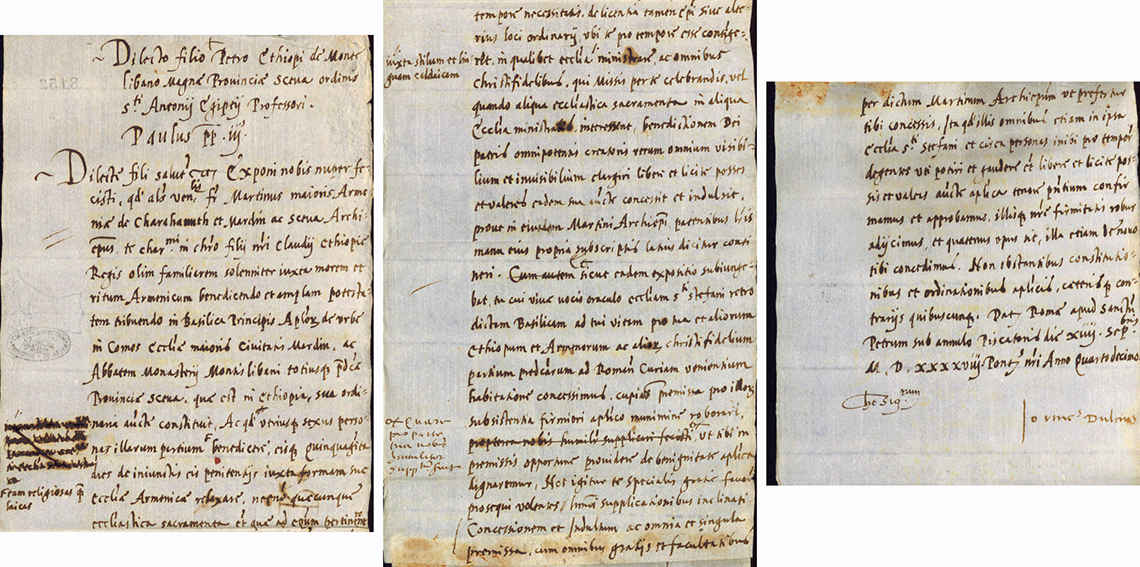 Dilecto filio Petro Ethiopi de Monte
libano Magnæ Provinciæ Sceva ordinis
sti Antonij Egiptij Professori.
Paulus pp. iij.
Dilecte fili salutē Exponi nobis nuper fe-
cisti, qd als ven. fr Martinus maioris Arme
niæ de Charahamuth et Mardin ac Sceva Archi-
epus, te charmi in chro filij nri Claudij Ethiopiæ
Regis olim familiarem solenniter iuxta morem et
ritum Armenicum benedicendo et amplam potesta-
tem tribuendo in Basilica Principis Aplor de urbe
in Comos Ecclīæ maioris Civitatis Mardin, ac
Abbatem Monasterij Montis libani totiusq pdcæ
Provinciæ Sceva, quæ est in ethiopia, sua ordi-
naria aucte constituit, Ac qd utriusq sexus perso-
nas illarum partium benedicere, eisq Quinquaginta
dies de iniunctis eis penitentijs iuxta formam suæ
Ecclīæ Armenicæ relaxare, necnon quæcunque
ecclīastica sacramenta et quæ ad epum pertinent
Etam religiosas q
laicas
tempore necessitatis, de licentia tamen Epi sive alte-
rius loci ordinarij ubi te pro tempore esse contige-
rēt, in qualibet ecclīa ministrare, ac omnibus
iuxta stilum et lin
guam caldaicam
christifidelibus, qui Missis per te celebrandis, vel
quando aliqua ecclīastica sacramenta in aliqua
Ecclīa ministrabis, interessent, benedictionem Dei
patris omnipotentis creatoris rerum omnium visibi-
lium et invisibilium elargiri libere et licite posses
et valeres eadem sua aucte concessit et indulsit,
prout in eiusdem Martini Archiepi patentibus lris
manu eius propria subscriptis latius dicitur conti
neri. Cum autem sicut eadem expositio subiunge-
bat, tu cui vivæ vocis oraculo ecclīam sti stefani retro
dictam Basilicam ad tui vitam pro tua et aliorum
Ethiopum et Armenorum ac alior christifidelium
partium predcarum ad Romā Curiam venientium
habitatione concessimus, cupias premissa pro illor
subsistentia firmiori aplico munimine roborari,
propterea nobis humilr supplicari fecisti, ut tibi in
premissis opportune providere de benignitate aplica
dignaremur, Nos igitur te specialis gratiæ favore
prosequi volentes, tuis supplicationibus inclinati
Concessionem et Indultum ac omnia et singula
premissa, cum omnibus gratijs et facultatibus
Quare
pro parte
tua nobis
humiliter
per dictum Martinum Archiepum ut prefertur
tibi concessis, Ita qd illis omnibus etiam in ipsa
Ecclīa sti Stefani et circa personas inibi pro tempore
degentes uti potiri et gaudere et libere et licite pos-
sis et valeas aucte aplica tenore pntium confir
mamus et approbamus, illisq nræ firmitatis robur
adijcimus, et quatenus opus ēt, illa etiam de novo
tibi concedimus. Non obstantibus constitutio-
nibus et ordinationibus aplicis, cæterisq con-
trarijs quibuscunq. Dat Romæ apud Sanctū
Petrum sub annulo Piscatoris die xiiij Sepbris
M. D. xxxxvij. Pontus nri Anno Quartodecimo